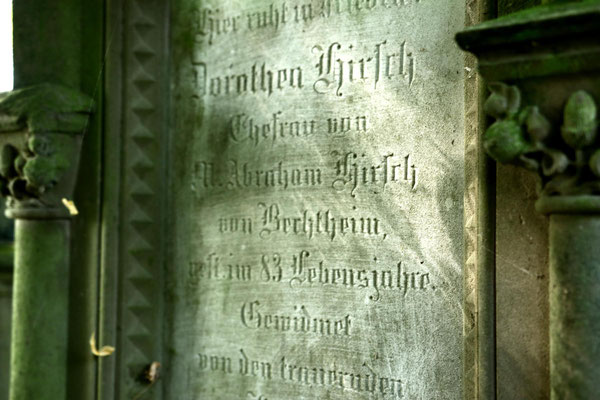 Hier ruht in Frieden
Dorothea Hirsch
Ehefrau von
M. Abraham Hirsch
von Bechtheim,
gest. im 83 Lebensjahre.
Gewidmet
von den trauernden